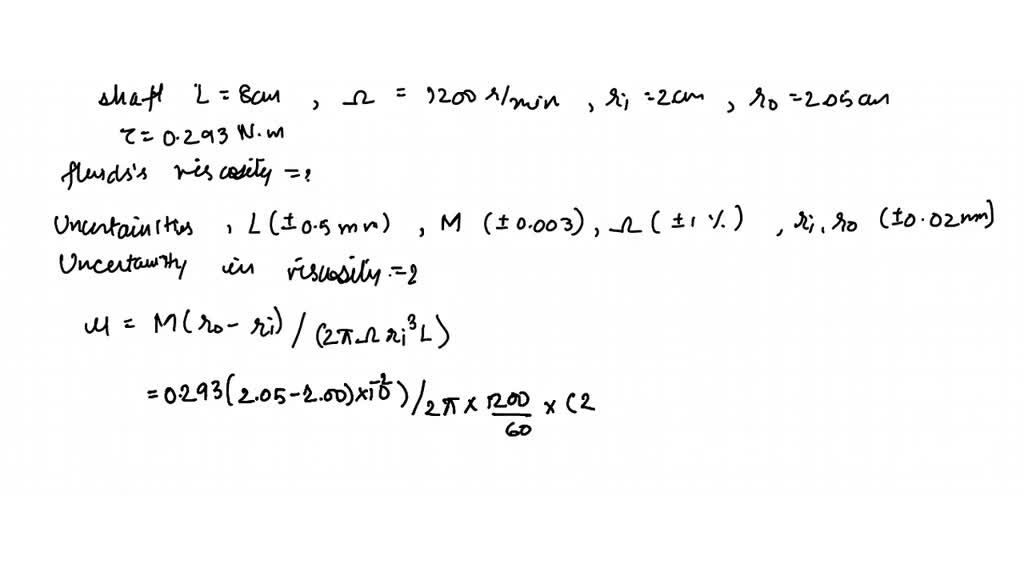 shaft L = 8cm , Ω = 1200 r/min , ri = 2cm , ro = 2.05cm
τ = 0.293 N.m
fluids's viscosity = ?
Uncertainities , L (±0.5 mm) , M (±0.003) , Ω (±1 %) , ri, ro (±0.02mm)
Uncertainity in viscosity = ?
μ = M(ro - ri) / (2π Ω ri³ L)
= 0.293(2.05 - 2.00) × 10⁻²) / 2π × 1200/60 × (2